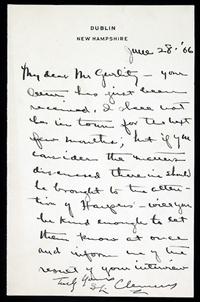 DUBLIN
NEW HAMPSHIRE
June 28. '06
My dear Mr — your
letter has just been
received. I shall not
be in town for the next
few months, but if you
consider the matters
discussed therein should
be brought to the atten-
tion of Harpers — will you
be kind enough to let
them know at once
and inform me of the
result of your interview
Truly Yours
SL Clemens